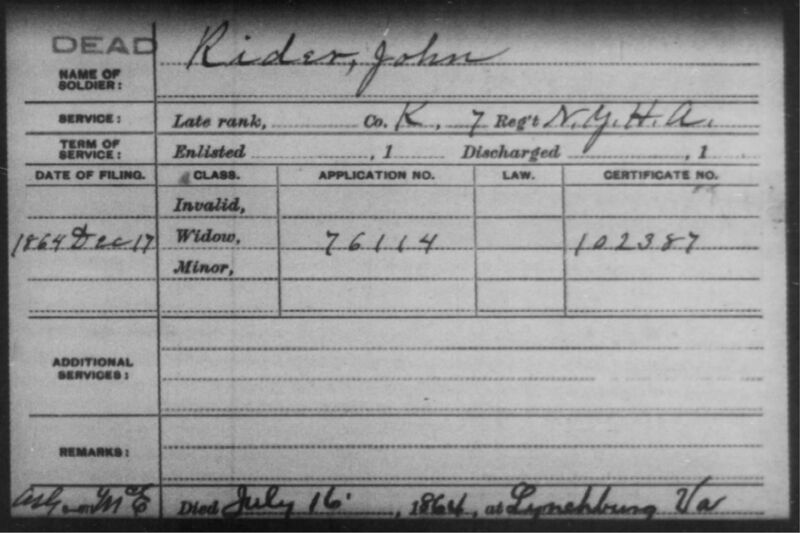 DEAD
Rider, John
NAME OF
SOLDIER:
SERVICE: Late rank, Co. K, 7 Reg't N.Y.H.A.
TERM OF
SERVICE: Enlisted , 1 Discharged , 1
DATE OF FILING. CLASS. APPLICATION NO. LAW. CERTIFICATE NO.
Invalid,
1864 Dec 17 Widow, 76114 102387
Minor,
ADDITIONAL
SERVICES:
REMARKS:
Died July 16 , 1864, at Lynchburg Va